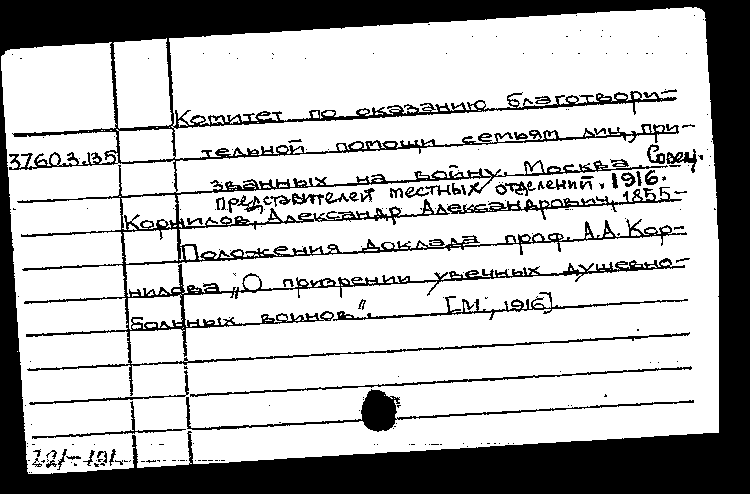 Комитет по оказанию благотвори-
3760.3.135 тельной помощи семьям лиц, при-
званных на войну. Москва. Совещ.
представителей местных отделений. 1916.
Корнилов, Александр Александрович, 1855-
Положения доклада проф. А.А. Кор-
нилова „О призрении увечных душевно-
больных воинов“. [М., 1916].